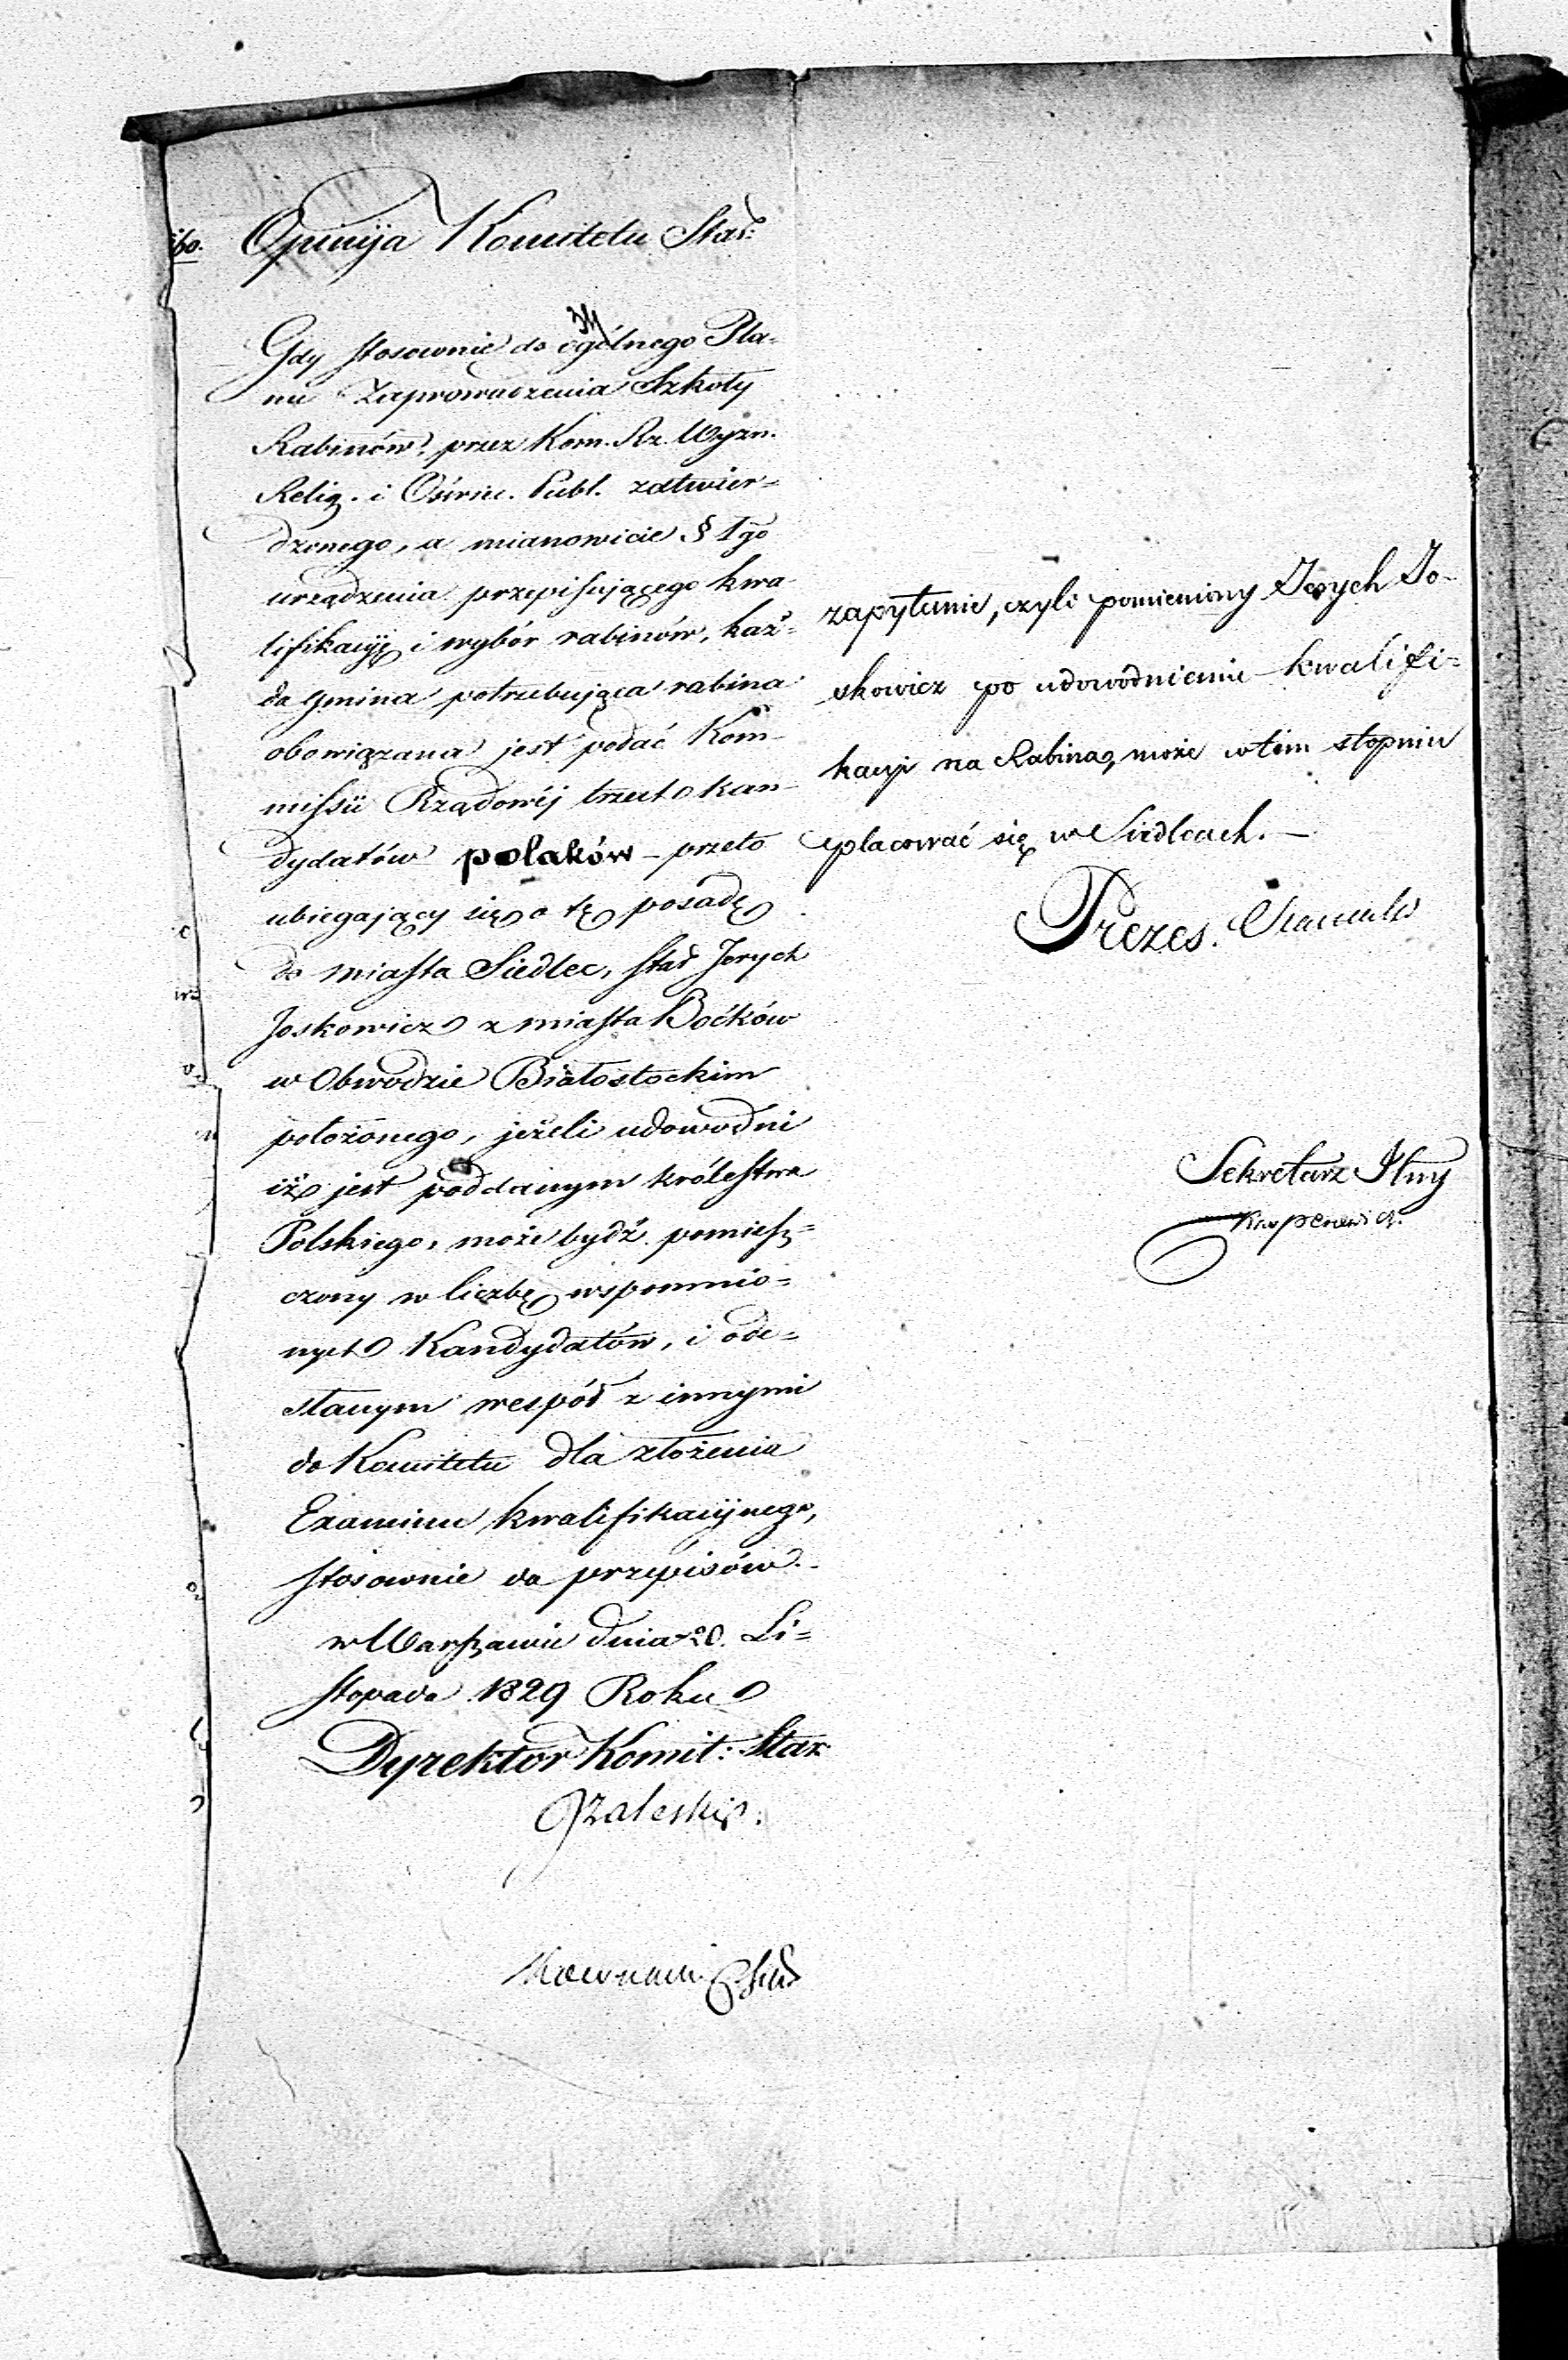 Opinija Komitetu Star:
Gdy stosownie do ogólnego Pla-
nu Zaprowadzenia Szkoły
Rabinów, przez Kom. Rz. Wyzn.
Relig. i Oświe. Publ. zatwier=
dzonego, a mianowicie § 1go
urządzenia przepisującego kwa-
lifikacyę i wybór rabinów, każ=
da gmina potrzebująca rabina
obowiązana jest podać Kom-
missii Rządowéj trzech kan-
dydatów polaków – przeto
ubiegający się o tę posadę
do miasta Siedlec, Star. Jerych
Joskowicz z miasta Boćków
w Obwodzie Białostockim
położonego, jeżeli udowodni
iż jest poddanym królestwa
Polskiego, może bydź pomiesz=
czony w liczbę wspomnio=
nych Kandydatów, i ode=
słanym wespół z innymi
do Komitetu dla złożenia
Examinu kwalifikacyjnego,
stosownie do przepisów.
w Warszawie dnia 20. Li=
stopada 1829 Roku
Dyrektor Komit: Star:
JZaleski
zapytanie, czyli pomieniony Jerych Jo-
skowicz po udowodnieniu kwalifi=
kacyi na Rabina, może w tem stopniu
placować się w Siedlcach. –
Prezes.
Sekretarz Jlny
Kasperowicz.